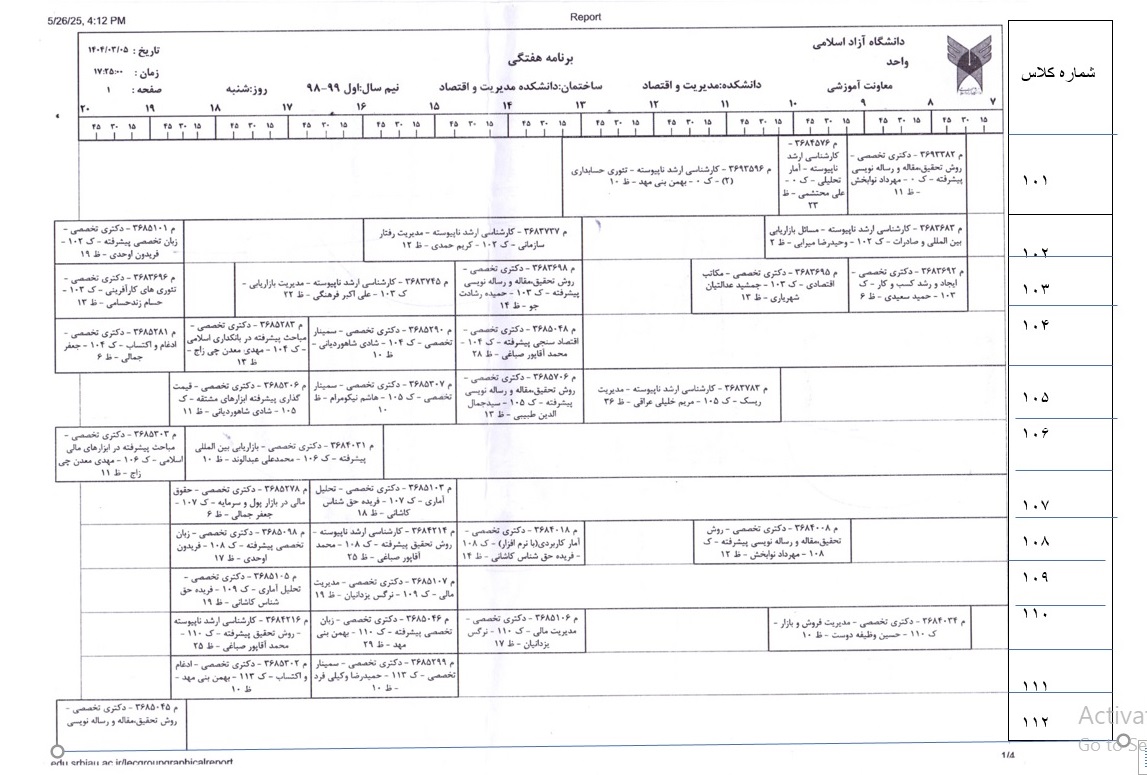 5/26/25, 4:12 PM
Report
دانشگاه آزاد اسلامی
واحد
معاونت آموزشی
برنامه هفتگی
تاریخ : ۱۴۰۴/۰۳/۰۵
زمان : ۱۷:۲۵:۰۰
صفحه : ۱
دانشکده:مدیریت و اقتصاد
ساختمان:دانشکده مدیریت و اقتصاد
نیم سال:اول ۹۹-۹۸
روز:شنبه
شماره کلاس
۷ ۸ ۹ ۱۰ ۱۱ ۱۲ ۱۳ ۱۴ ۱۵ ۱۶ ۱۷ ۱۸ ۱۹ ۲۰
۱۵ ۳۰ ۴۵ ۱۵ ۳۰ ۴۵ ۱۵ ۳۰ ۴۵ ۱۵ ۳۰ ۴۵ ۱۵ ۳۰ ۴۵ ۱۵ ۳۰ ۴۵ ۱۵ ۳۰ ۴۵ ۱۵ ۳۰ ۴۵ ۱۵ ۳۰ ۴۵ ۱۵ ۳۰ ۴۵ ۱۵ ۳۰ ۴۵ ۱۵ ۳۰ ۴۵ ۱۵ ۳۰ ۴۵
۱۰۱
م ۳۶۹۳۳۸۲ - دکتری تخصصی -
روش تحقیق،مقاله و رساله نویسی
پیشرفته - ک ۰ - مهرداد نوابخش
- ظ ۱۱
م ۳۶۸۴۵۷۶ -
کارشناسی ارشد
ناپیوسته - آمار
تحلیلی - ک ۰ -
علی محتشمی - ظ
۲۳
م ۳۶۹۳۵۹۶ - کارشناسی ارشد ناپیوسته - تئوری حسابداری
(۲) - ک ۰ - بهمن بنی مهد - ظ ۱۰
۱۰۲
م ۳۶۸۳۶۸۳ - کارشناسی ارشد ناپیوسته - مسائل بازاریابی
بین المللی و صادرات - ک ۱۰۲ - وحیدرضا میرابی - ظ ۲
م ۳۶۸۳۷۳۷ - کارشناسی ارشد ناپیوسته - مدیریت رفتار
سازمانی - ک ۱۰۲ - کریم حمدی - ظ ۱۲
م ۳۶۸۵۱۰۱ - دکتری تخصصی -
زبان تخصصی پیشرفته - ک ۱۰۲ -
فریدون اوحدی - ظ ۱۹
۱۰۳
م ۳۶۸۳۶۹۲ - دکتری تخصصی -
ایجاد و رشد کسب و کار - ک
۱۰۳ - حمید سعیدی - ظ ۶
م ۳۶۸۳۶۹۵ - دکتری تخصصی - مکاتب
اقتصادی - ک ۱۰۳ - جمشید عدالتیان
شهریاری - ظ ۱۳
م ۳۶۸۳۶۹۸ - دکتری تخصصی -
روش تحقیق،مقاله و رساله نویسی
پیشرفته - ک ۱۰۳ - حمیده رشادت
جو - ظ ۱۴
م ۳۶۸۳۷۴۵ - کارشناسی ارشد ناپیوسته - مدیریت بازاریابی -
ک ۱۰۳ - علی اکبر فرهنگی - ظ ۲۲
م ۳۶۸۳۶۹۶ - دکتری تخصصی -
تئوری های کارآفرینی - ک ۱۰۳ -
حسام زندحسامی - ظ ۱۳
۱۰۴
م ۳۶۸۵۰۴۸ - دکتری تخصصی -
اقتصاد سنجی پیشرفته - ک ۱۰۴ -
محمد آقاپور صباغی - ظ ۲۸
م ۳۶۸۵۲۹۰ - دکتری تخصصی - سمینار
تخصصی - ک ۱۰۴ - شادی شاهوردیانی -
ظ ۱۰
م ۳۶۸۵۲۸۳ - دکتری تخصصی -
مباحث پیشرفته در بانکداری اسلامی
- ک ۱۰۴ - مهدی معدن چی زاج -
ظ ۱۳
م ۳۶۸۵۲۸۱ - دکتری تخصصی -
ادغام و اکتساب - ک ۱۰۴ - جعفر
جمالی - ظ ۶
۱۰۵
م ۳۶۸۳۷۸۳ - کارشناسی ارشد ناپیوسته - مدیریت
ریسک - ک ۱۰۵ - مریم خلیلی عراقی - ظ ۳۶
م ۳۶۸۵۷۰۶ - دکتری تخصصی -
روش تحقیق،مقاله و رساله نویسی
پیشرفته - ک ۱۰۵ - سیدجمال
الدین طبیبی - ظ ۱۳
م ۳۶۸۵۳۰۷ - دکتری تخصصی - سمینار
تخصصی - ک ۱۰۵ - هاشم نیکومرام - ظ
۱۰
م ۳۶۸۵۳۰۶ - دکتری تخصصی - قیمت
گذاری پیشرفته ابزارهای مشتقه - ک
۱۰۵ - شادی شاهوردیانی - ظ ۱۱
۱۰۶
م ۳۶۸۴۰۳۱ - دکتری تخصصی - بازاریابی بین المللی
پیشرفته - ک ۱۰۶ - محمدعلی عبدالوند - ظ ۱۰
م ۳۶۸۵۳۰۳ - دکتری تخصصی -
مباحث پیشرفته در ابزارهای مالی
اسلامی - ک ۱۰۶ - مهدی معدن چی
زاج - ظ ۱۱
۱۰۷
م ۳۶۸۵۱۰۳ - دکتری تخصصی - تحلیل
آماری - ک ۱۰۷ - فریده حق شناس
کاشانی - ظ ۱۸
م ۳۶۸۵۲۷۸ - دکتری تخصصی - حقوق
مالی در بازار پول و سرمایه - ک ۱۰۷ -
جعفر جمالی - ظ ۶
۱۰۸
م ۳۶۸۴۰۰۸ - دکتری تخصصی - روش
تحقیق،مقاله و رساله نویسی پیشرفته - ک
۱۰۸ - مهرداد نوابخش - ظ ۱۲
م ۳۶۸۴۰۱۸ - دکتری تخصصی -
آمار کاربردی(با نرم افزار) - ک ۱۰۸
- فریده حق شناس کاشانی - ظ ۱۴
م ۳۶۸۴۲۱۴ - کارشناسی ارشد ناپیوسته -
روش تحقیق پیشرفته - ک ۱۰۸ - محمد
آقاپور صباغی - ظ ۲۵
م ۳۶۸۵۰۹۸ - دکتری تخصصی - زبان
تخصصی پیشرفته - ک ۱۰۸ - فریدون
اوحدی - ظ ۱۷
۱۰۹
م ۳۶۸۵۱۰۷ - دکتری تخصصی - مدیریت
مالی - ک ۱۰۹ - نرگس یزدانیان - ظ ۱۹
م ۳۶۸۵۱۰۵ - دکتری تخصصی -
تحلیل آماری - ک ۱۰۹ - فریده حق
شناس کاشانی - ظ ۱۹
۱۱۰
م ۳۶۸۴۰۳۴ - دکتری تخصصی - مدیریت فروش و بازار -
ک ۱۱۰ - حسین وظیفه دوست - ظ ۱۰
م ۳۶۸۵۱۰۶ - دکتری تخصصی -
مدیریت مالی - ک ۱۱۰ - نرگس
یزدانیان - ظ ۱۷
م ۳۶۸۵۰۴۶ - دکتری تخصصی - زبان
تخصصی پیشرفته - ک ۱۱۰ - بهمن بنی
مهد - ظ ۲۹
م ۳۶۸۴۲۱۶ - کارشناسی ارشد ناپیوسته
- روش تحقیق پیشرفته - ک ۱۱۰ -
محمد آقاپور صباغی - ظ ۲۵
۱۱۱
م ۳۶۸۵۲۹۹ - دکتری تخصصی - سمینار
تخصصی - ک ۱۱۳ - حمیدرضا وکیلی فرد
- ظ ۱۰
م ۳۶۸۵۳۰۲ - دکتری تخصصی - ادغام
و اکتساب - ک ۱۱۳ - بهمن بنی مهد -
ظ ۱۰
۱۱۲
م ۳۶۸۵۰۴۵ - دکتری تخصصی -
روش تحقیق،مقاله و رساله نویسی
Activa
Go to Se
edu.srbiau.ac.ir/lecgroupgraphicalreport
1/4